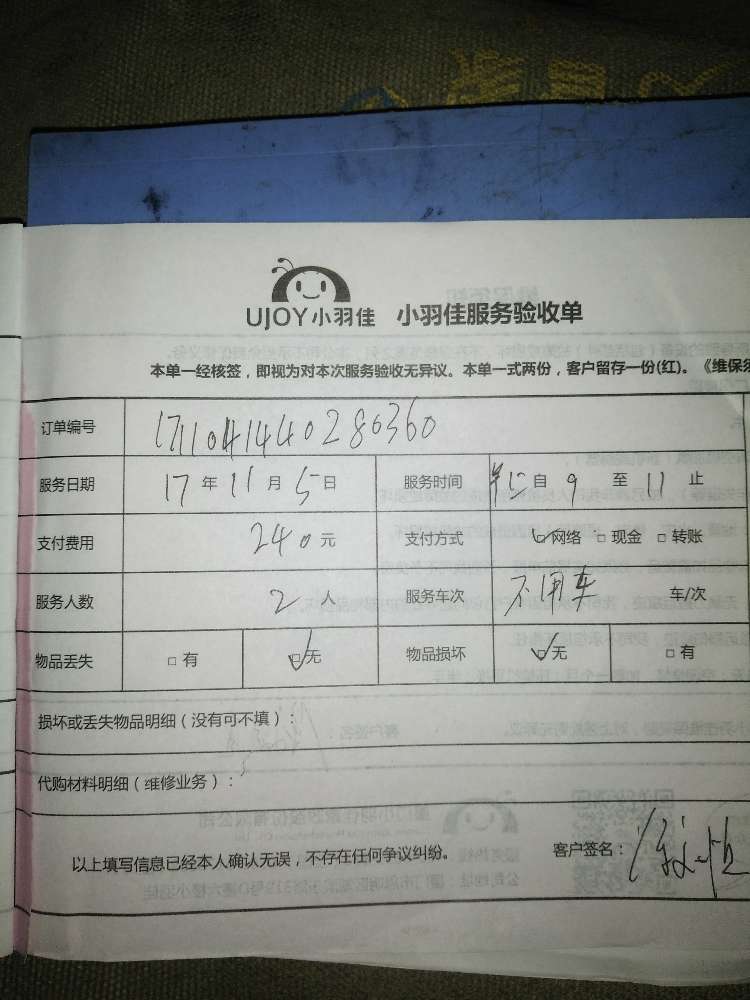 UJOY小羽佳 小羽佳服务验收单
本单一经核签，即视为对本次服务验收无异议。本单一式两份，客户留存一份(红)。《维保须
订单编号 1711041440280360
服务日期 17 年 11 月 5 日 服务时间 自 9 至 11 止
支付费用 240 元 支付方式 ☑网络 □现金 □转账
服务人数 2 人 服务车次 不用车 车/次
物品丢失 □有 ☑无 物品损坏 ☑无 □有
损坏或丢失物品明细（没有可不填）：
代购材料明细（维修业务）：
以上填写信息已经本人确认无误，不存在任何争议纠纷。 客户签名：